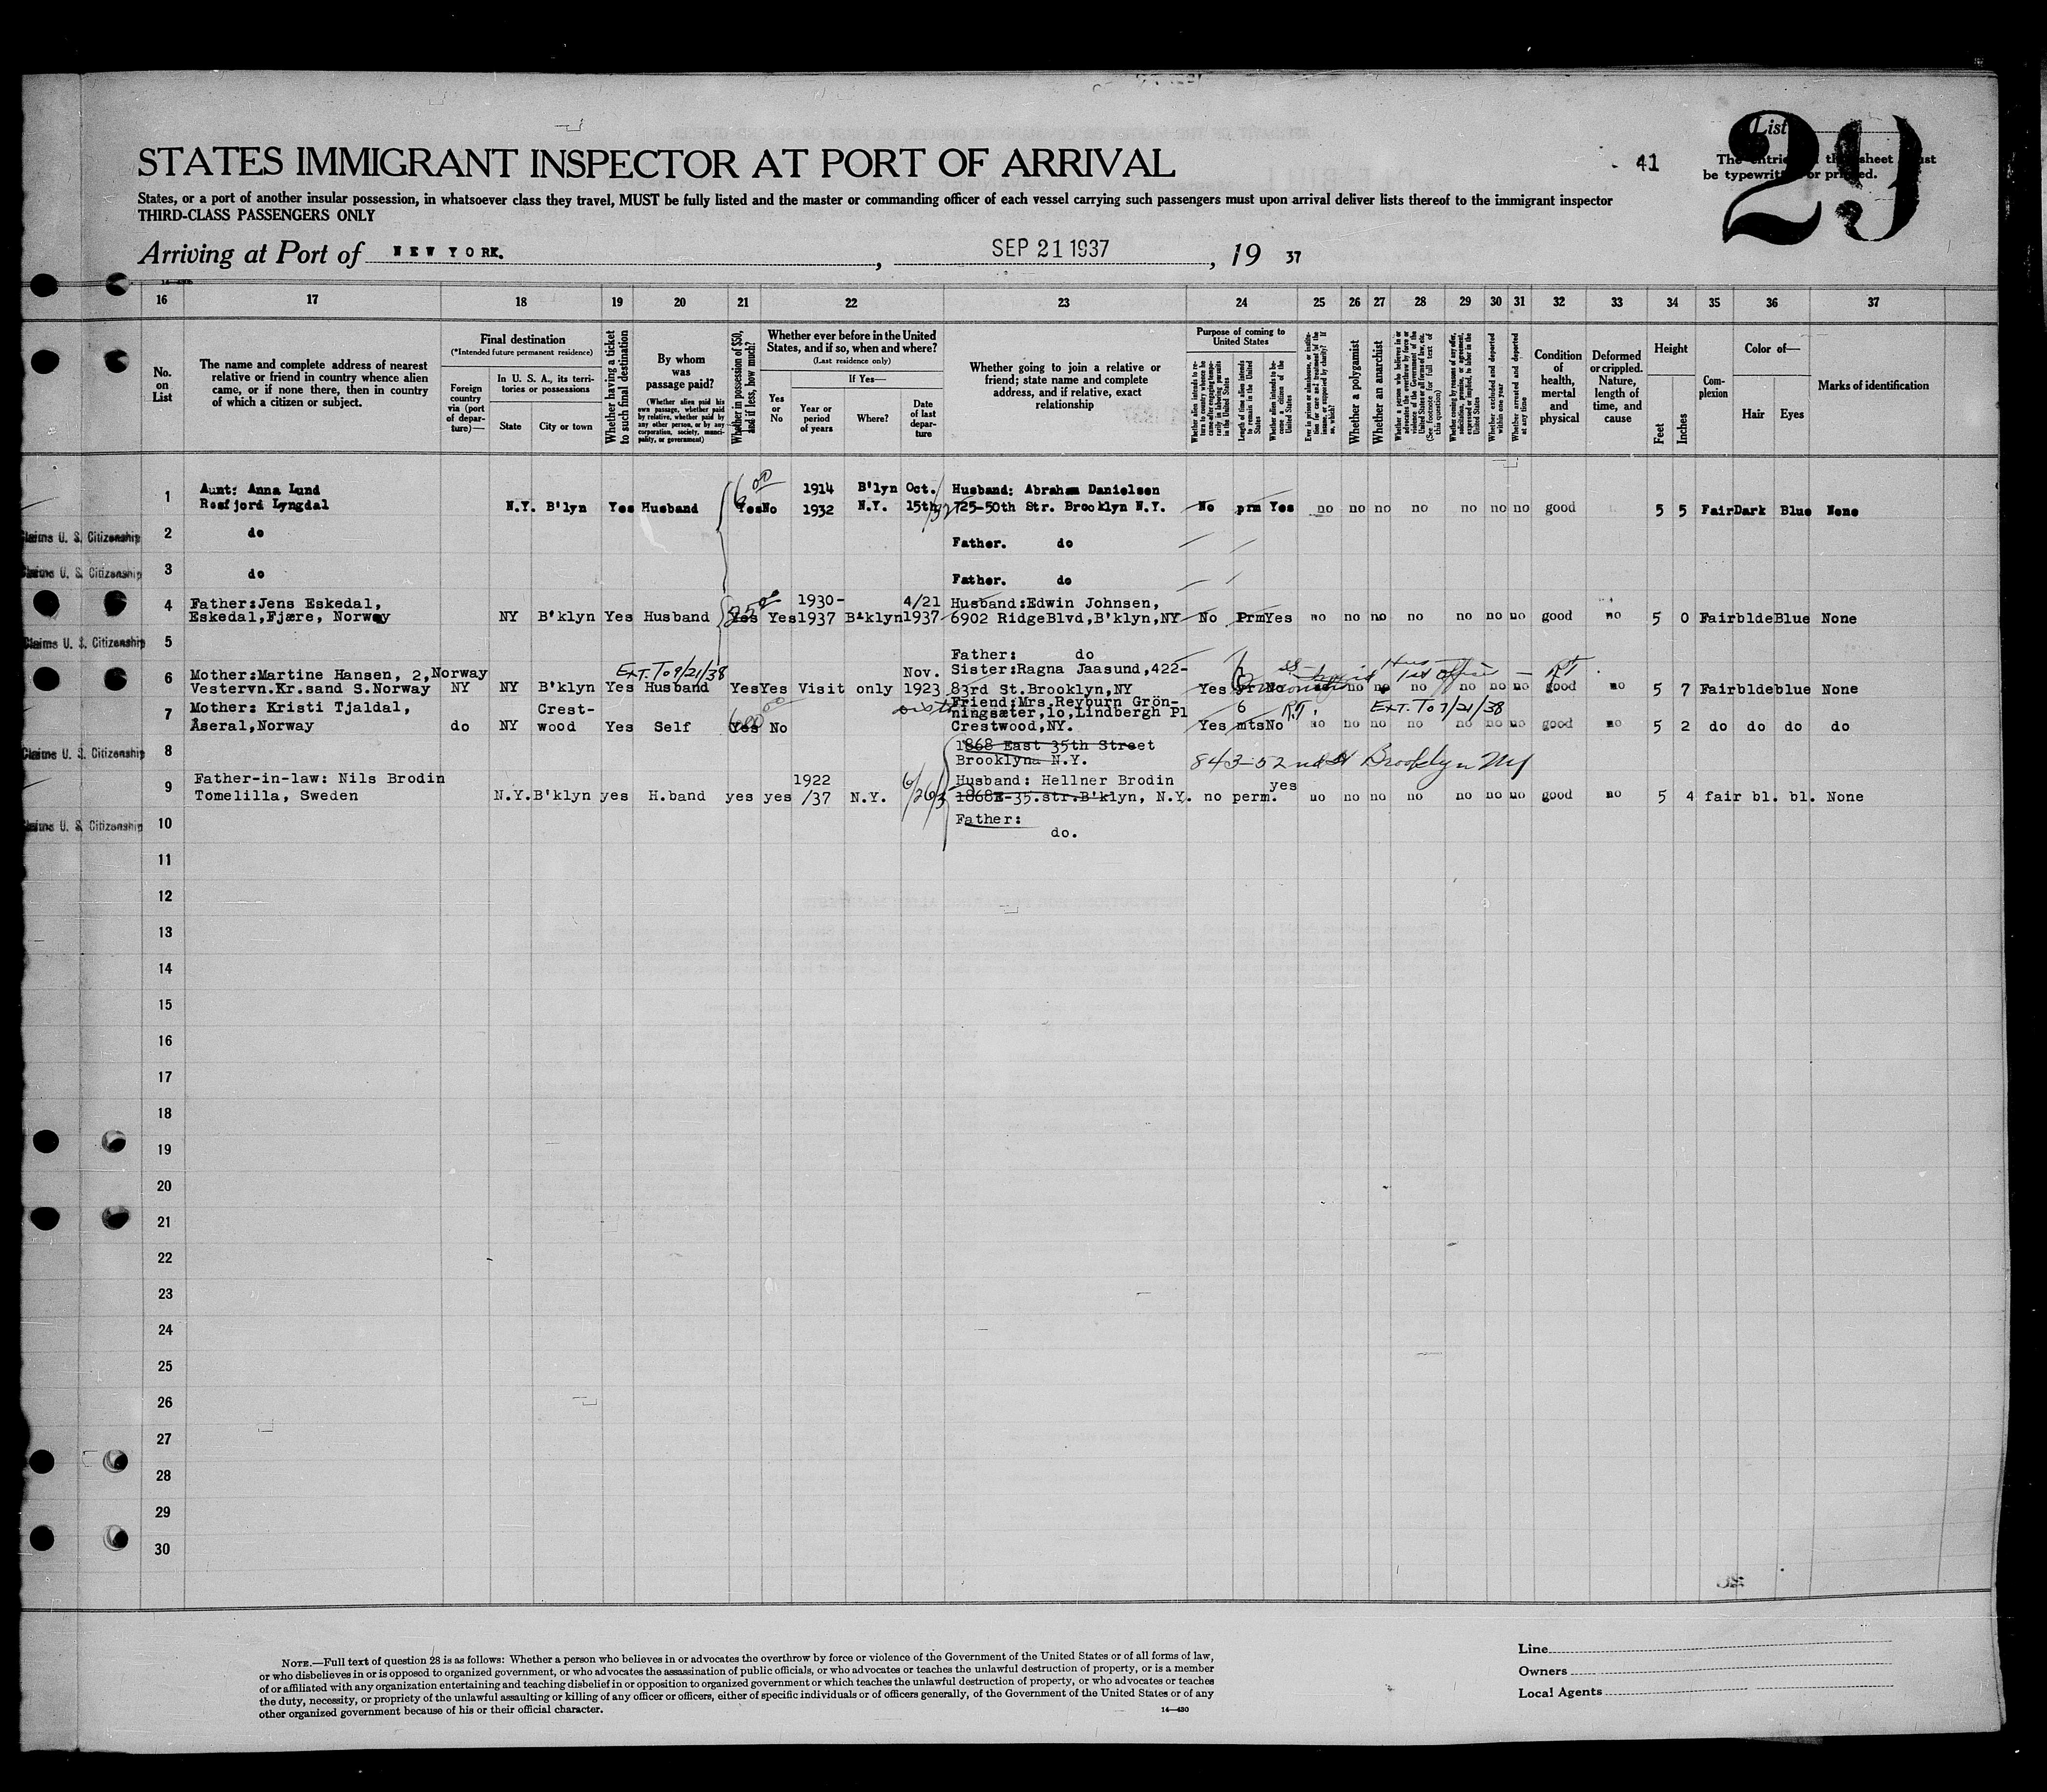 List
29
STATES IMMIGRANT INSPECTOR AT PORT OF ARRIVAL
41
The entries on this sheet must
be typewritten or printed.
States, or a port of another insular possession, in whatsoever class they travel, MUST be fully listed and the master or commanding officer of each vessel carrying such passengers must upon arrival deliver lists thereof to the immigrant inspector
THIRD-CLASS PASSENGERS ONLY
Arriving at Port of NEW YORK. , SEP 21 1937 , 19 37
16 17 18 19 20 21 22 23 24 25 26 27 28 29 30 31 32 33 34 35 36 37
No. on List
The name and complete address of nearest relative or friend in country whence alien came, or if none there, then in country of which a citizen or subject.
Final destination
(*Intended future permanent residence)
Foreign country via (port of departure)—
In U. S. A., its territories or possessions
State
City or town
Whether having a ticket to such final destination
By whom was passage paid?
(Whether alien paid his own passage, whether paid by relative, whether paid by any other person, or by any corporation, society, municipality, or government)
Whether in possession of $50, and if less, how much?
Whether ever before in the United States, and if so, when and where?
(Last residence only)
Yes or No
If Yes—
Year or period of years
Where?
Date of last departure
Whether going to join a relative or friend; state name and complete address, and if relative, exact relationship
Purpose of coming to United States
Whether alien intends to return to country whence he came after engaging temporarily in laboring pursuits in the United States
Length of time alien intends to remain in the United States
Whether alien intends to become a citizen of the United States
Ever in prison or almshouse, or institution for care and treatment of the insane, or supported by charity? If so, which?
Whether a polygamist
Whether an anarchist
Whether a person who believes in or advocates the overthrow by force or violence of the Government of the United States or all forms of law, etc. (See footnote for full text of this question)
Whether coming by reasons of any offer, solicitation, promise, or agreement, expressed or implied, to labor in the United States
Whether excluded and deported within one year
Whether arrested and deported at any time
Condition of health, mental and physical
Deformed or crippled. Nature, length of time, and cause
Height
Feet
Inches
Complexion
Color of—
Hair
Eyes
Marks of identification
1 Aunt: Anna Lund 6.00 1914 B'lyn Oct. Husband: Abraham Danielsen
Rosfjord Lyngdal N.Y. B'lyn Yes Husband Yes No 1932 N.Y. 15th/32 725-50th Str. Brooklyn N.Y. No prm Yes no no no no no no no good 5 5 Fair Dark Blue None
Claims U. S. Citizenship 2 do Father. do
Claims U. S. Citizenship 3 do Father. do
4 Father:Jens Eskedal, 1930- 4/21 Husband:Edwin Johnsen,
Eskedal,Fjære, Norway NY B'klyn Yes Husband Yes Yes 1937 B'klyn 1937 6902 RidgeBlvd,B'klyn,NY No Prm Yes no no no no no no no good no 5 0 Fair blde Blue None
Claims U. S. Citizenship 5 Father: do
6 Mother:Martine Hansen, 2, Norway Ext. To 9/21/38 Nov. Sister:Ragna Jaasund,422-
Vestervn.Kr.sand S.Norway NY NY B'klyn Yes Husband Yes Yes Visit only 1923 83rd St.Brooklyn,NY Yes 6 yr No no no no no no no good no 5 7 Fair blde blue None
7 Mother: Kristi Tjaldal, Crest- Friend:Mrs.Reyburn Grön-
ningsæter,10,Lindbergh Pl 6 R.T. Ext. To 7/21/38
Åseral,Norway do NY wood Yes Self Yes No Crestwood,NY. Yes mts No no no no no no no no good no 5 2 do do do do
Claims U. S. Citizenship 8 1868 East 35th Street
Brooklyn N.Y. 843-52nd St Brooklyn NY
9 Father-in-law: Nils Brodin 1922 Husband: Hellner Brodin yes
Tomelilla, Sweden N.Y. B'klyn yes H.band yes yes /37 N.Y. 6/26/3 1868E-35.str.B'klyn, N.Y. no perm. no no no no no no no good no 5 4 fair bl. bl. None
Claims U. S. Citizenship 10 Father:
do.
11
12
13
14
15
16
17
18
19
20
21
22
23
24
25
26
27
28
29
30
NOTE.—Full text of question 28 is as follows: Whether a person who believes in or advocates the overthrow by force or violence of the Government of the United States or of all forms of law,
or who disbelieves in or is opposed to organized government, or who advocates the assassination of public officials, or who advocates or teaches the unlawful destruction of property, or is a member
of or affiliated with any organization entertaining and teaching disbelief in or opposition to organized government or which teaches the unlawful destruction of property, or who advocates or teaches
the duty, necessity, or propriety of the unlawful assaulting or killing of any officer or officers, either of specific individuals or of officers generally, of the Government of the United States or of any
other organized government because of his or their official character.
14—430
Line
Owners
Local Agents